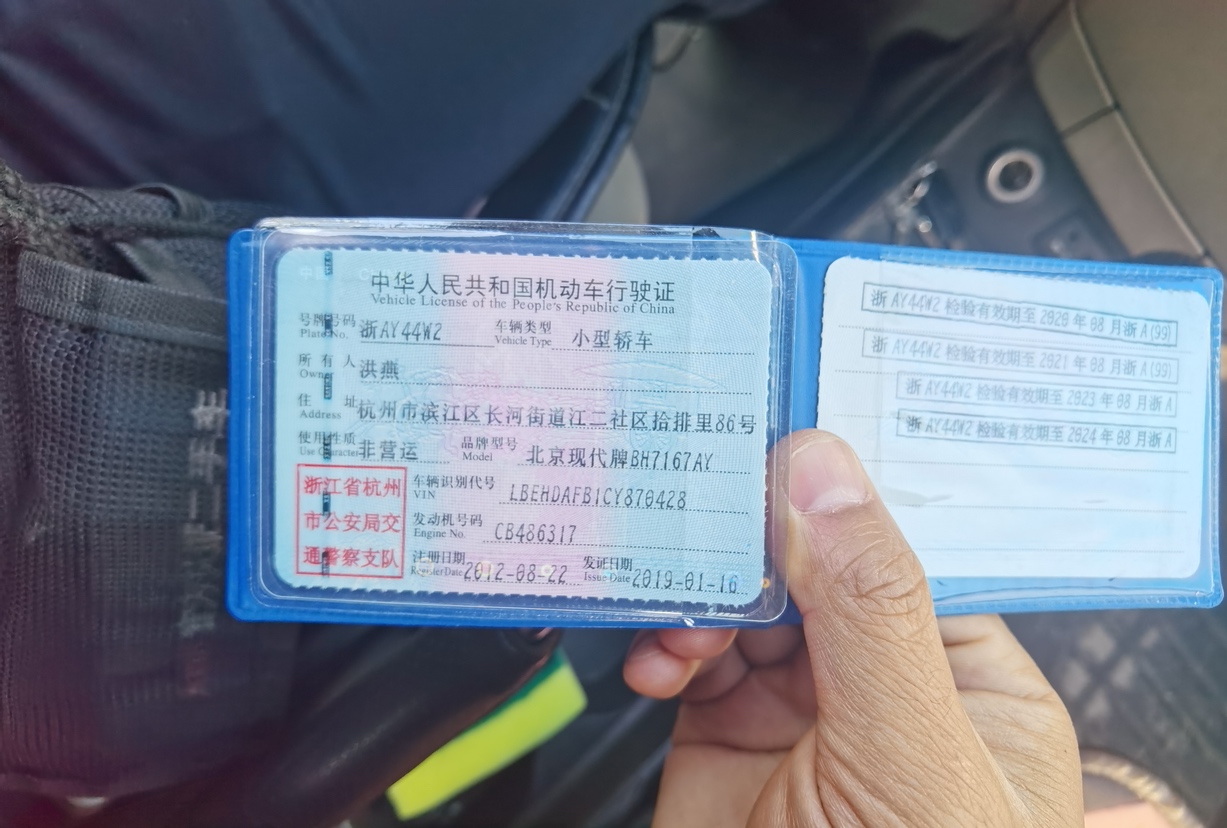 中华人民共和国机动车行驶证
Vehicle License of the People's Republic of China
号牌号码 浙AY44W2 车辆类型 小型轿车
Plate No. Vehicle Type
所有人 洪燕
Owner
住址 杭州市滨江区长河街道江二社区拾排里86号
Address
使用性质 非营运 品牌型号 北京现代牌BH7167AY
Use Character Model
浙江省杭州
市公安局交
通警察支队
车辆识别代号 LBEHDAFB1CY870428
VIN
发动机号码 CB486317
Engine No.
注册日期 2012-08-22 发证日期 2019-01-16
Register Date Issue Date
浙AY44W2 检验有效期至2020年08月浙A(99)
浙AY44W2 检验有效期至2021年08月浙A(99)
浙AY44W2 检验有效期至2023年08月浙A
浙AY44W2 检验有效期至2024年08月浙A